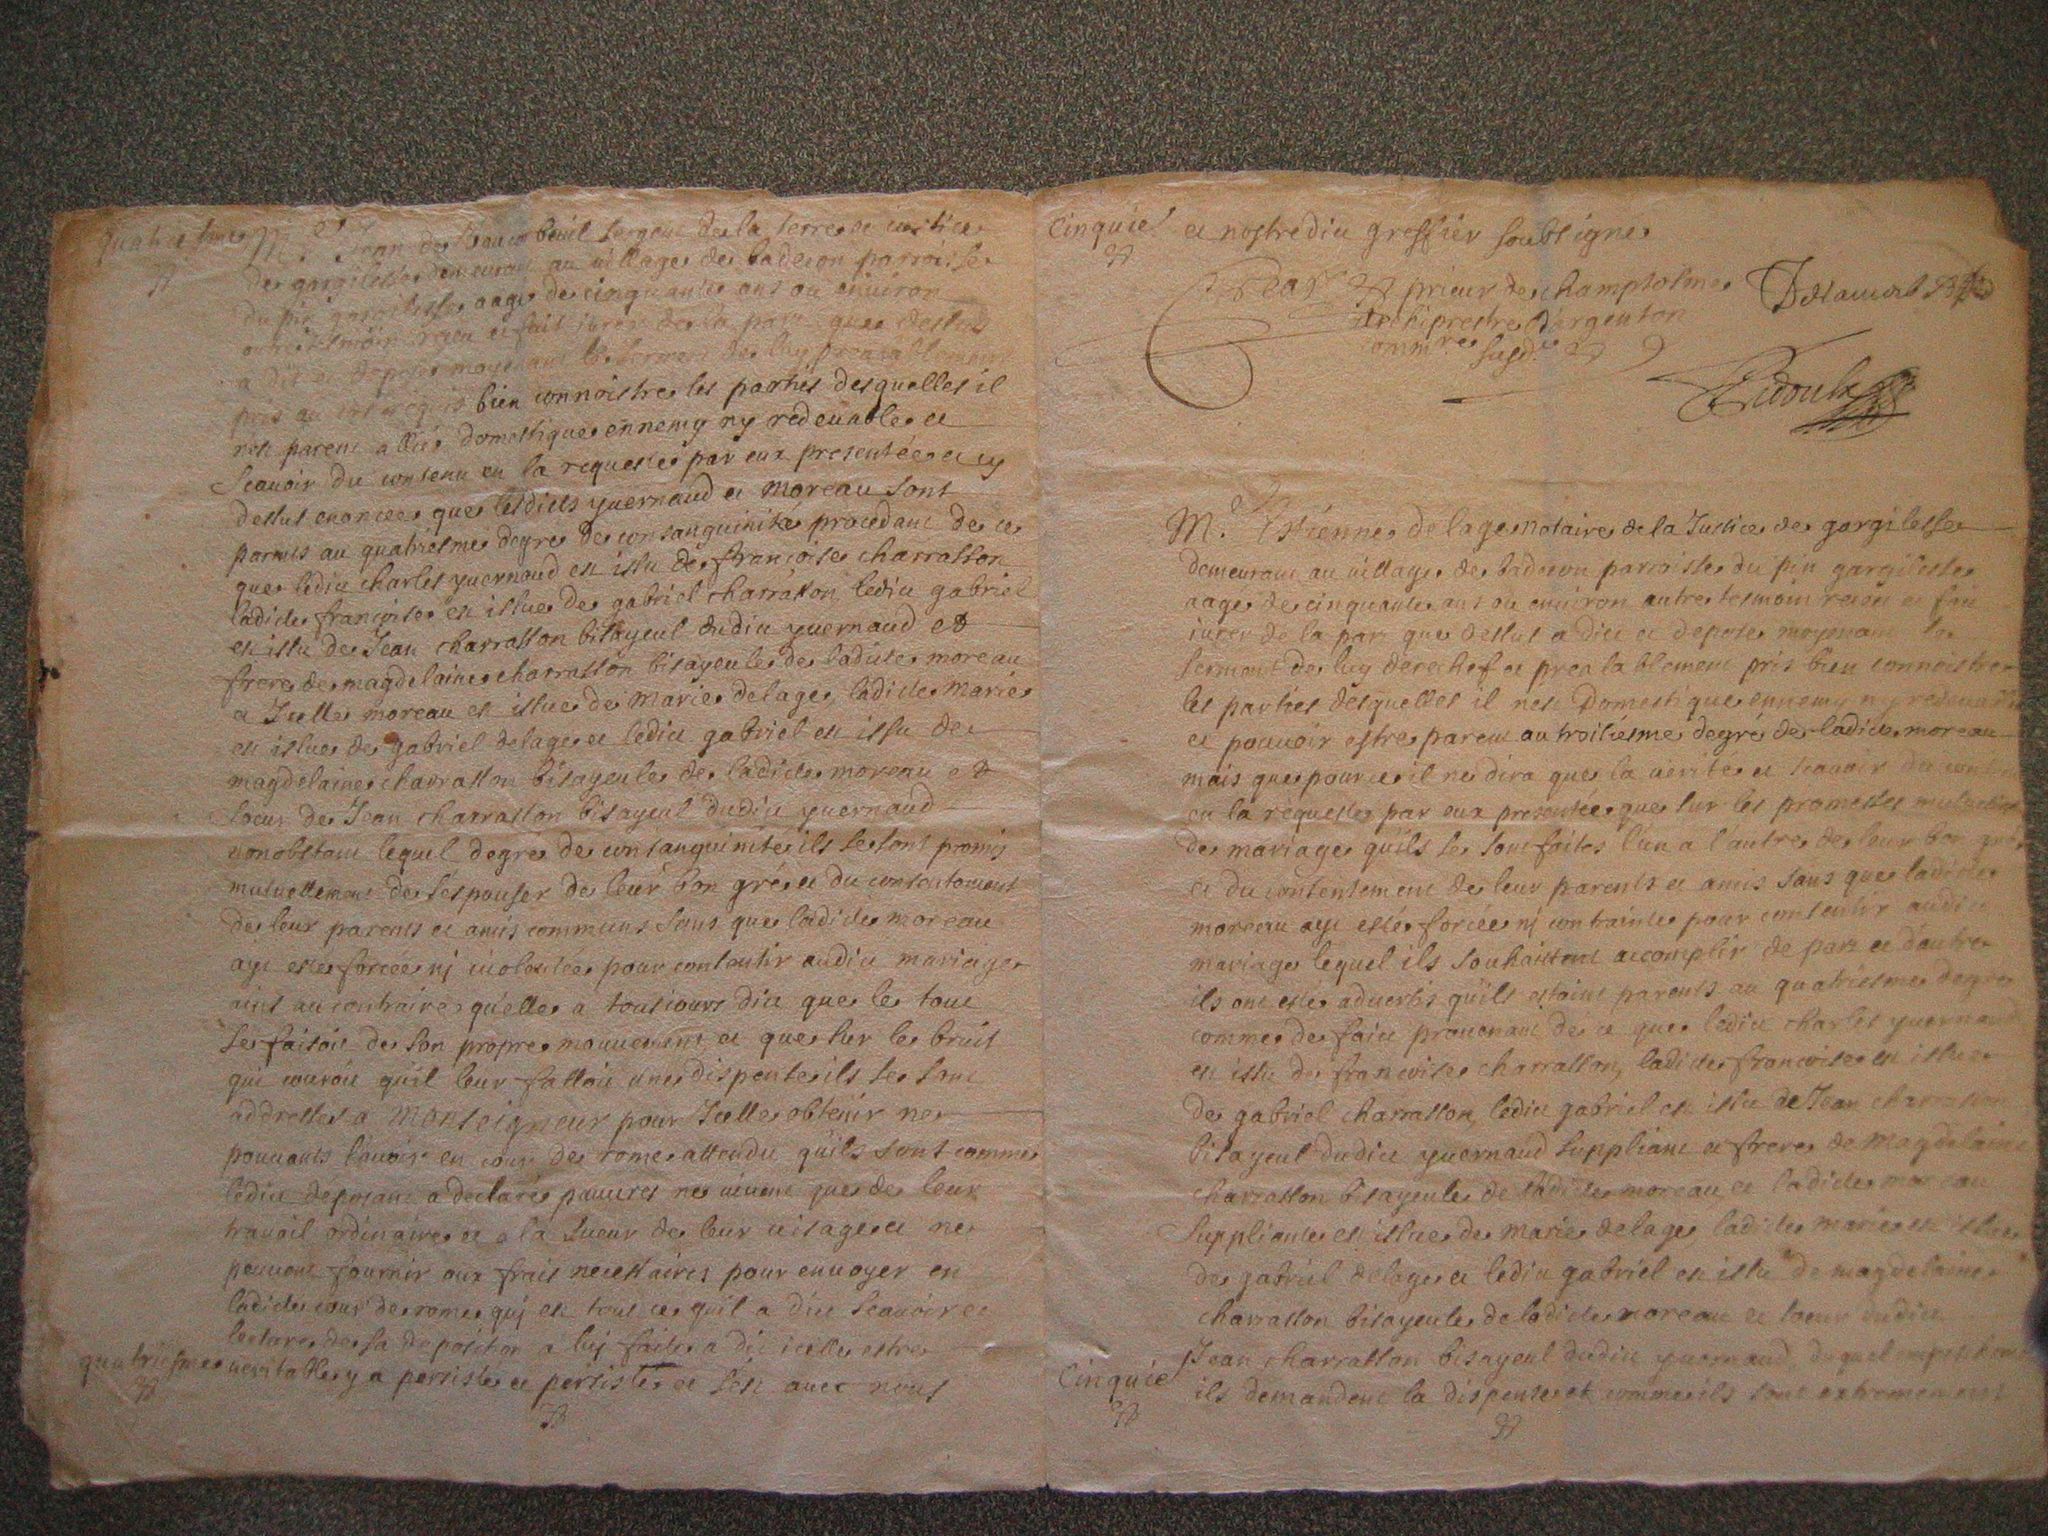 quatriesme
Me Jean de Beauvbeuil sergent de la terre et justice
de gargilesse demeurant au village de baderon parroisse
du pin gargilesse aagé de cinquante ans ou environ
autre tesmoin receu et fait jurer de la part que dessus
a dit et deposé moyennant le serment de luy prealablement
pris au cas requis bien connoistre les parties desquelles il
nest parent allié domestique ennemy ny redevable et
scavoir du contenu en la requeste par eux presentée et cy
dessus enoncée que lesdicts yvernaud et moreau sont
parents au quatriesme degré de consanguinité procedant de ce
que ledict charles yvernaud est issu de françoise charrasson
ladicte françoise est issue de gabriel charrasson ledict gabriel
est issu de Jean charrasson bisayeul dudict yvernaud et
frere de magdelaine charrasson bisayeule de ladicte moreau
et Icelle moreau est issue de Marie delage, ladicte Marie
est issue de gabriel delage et ledict gabriel est issu de
magdelaine charrasson bisayeule de ladicte moreau et
soeur de Jean charrasson bisayeul dudict yvernaud
nonobstant lequel degré de consanguinité ils se sont promis
mutuellement de s'espouser de leur bon gré et du consentement
de leur parents et amis communs sans que ladicte moreau
ayt esté forcée nj violentée pour consentir audict mariage
ains au contraire qu'elle a tousiours dict que le tout
se faisoit de son propre mouvement et que sur le bruit
qui couroit qu'il leur falloit une dispense ils se sont
addressés a Monseigneur pour Icelle obtenir ne
pouvants l'avoir en cour de rome attendu qu'ils sont comme
ledict deposant a declaré pauvres ne vivent que de leur
travail ordinaire et a la sueur de leur visage et ne
peuvent fournir aux frais necessaires pour envoyer en
ladicte cour de rome quj est tout ce qu'il a dict scavoir et
lecture de sa deposition a luj faite a dit icelle estre
quatriesme veritable y a persisté et persiste et s'est avec nous
Cinquie
et nostredict greffier soubsigne
prieur de champsolme
Archiprestre d'argenton
commre susdt
Me Estienne delage notaire de la Justice de gargilesse
demeurant au village de baderon parroisse du pin gargilesse
aagé de cinquante ans ou environ autre tesmoin receu et fait
jurer de la part que dessus a dict et deposé moyennant le
serment de luy derechef et prealablement pris bien connoistre
les parties desquelles il nest domestique ennemy ny redevable
et pouvoir estre parent au troisiesme degré de ladicte moreau
mais que pour ce il ne dira que la verité et scavoir du contenu
en la requeste par eux presentée que sur les promesses mutuelles
de mariage qu'ils se sont faites l'un a l'autre de leur bon gré
et du consentement de leur parents et amis sans que ladicte
moreau ayt esté forcée nj contrainte pour consentir audict
mariage lequel ils souhaittent accomplir de part et d'autre
ils ont esté advertis qu'ils estoint parents au quatriesme degré
comme de faict provenant de ce que ledict charles yvernaud
est issu de françoise charrasson, ladicte françoise est issue
de gabriel charrasson, ledict gabriel est issu de Jean charrasson
bisayeul dudict yvernaud suppliant et frere de magdelaine
charrasson bisayeule de ladicte moreau, et ladicte moreau
suppliante est issue de marie delage, ladicte marie est issue
de gabriel delage et ledict gabriel est issu de magdelaine
charrasson bisayeule de ladicte moreau et soeur dudict
Jean charrasson bisayeul dudict yvernaud, duquel
Cinquie ils demandent la dispense et comme ils sont extremement